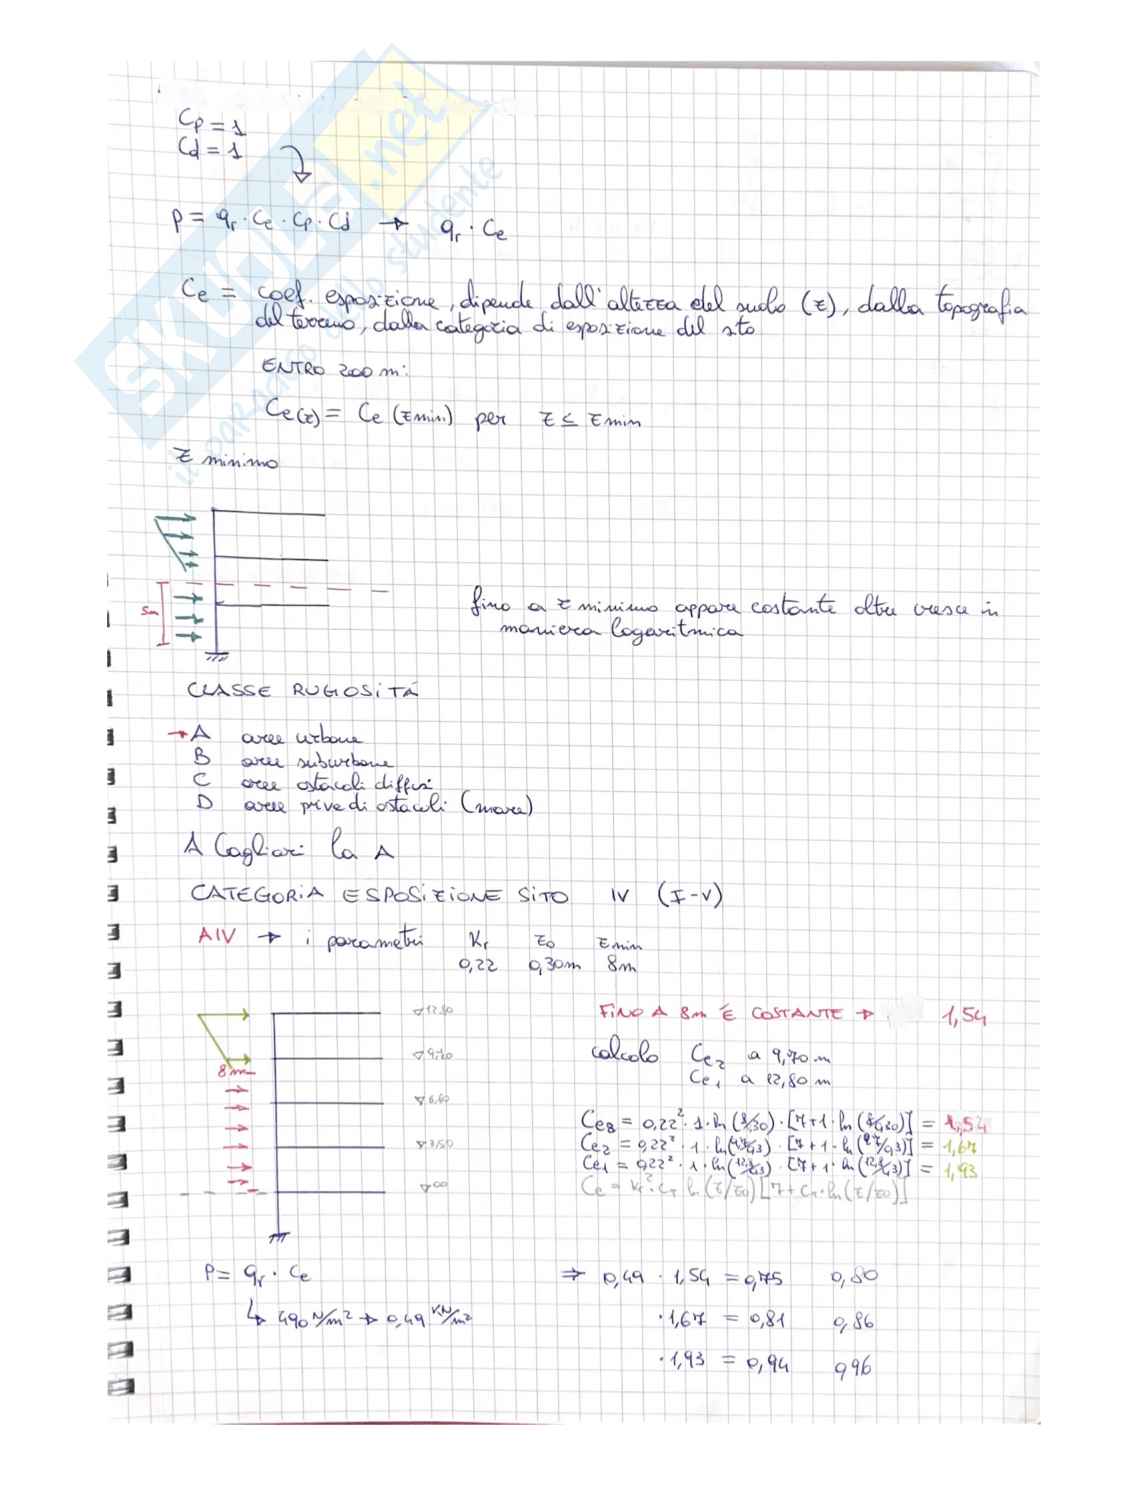 Cp = 1
Cd = 1
p = qr · Ce · Cp · Cd → qr · Ce
Ce = coef. esposizione, dipende dall'altezza del suolo (z), dalla topografia
del terreno, dalla categoria di esposizione del sito
ENTRO 200 m:
Ce(z) = Ce (zmin) per z ≤ zmin
z minimo
5m
fino a z minimo appare costante oltre cresce in
maniera logaritmica
CLASSE RUGOSITÁ
→ A aree urbane
B aree suburbane
C aree ostacoli diffusi
D aree prive di ostacoli (mare)
A Cagliari la A
CATEGORIA ESPOSIZIONE SITO IV (I-V)
AIV → i parametri Kr zo zmin
0,22 0,30m 8m
FINO A 8m É COSTANTE → 1,54
calcolo Ce2 a 9,70 m
Ce1 a 12,80 m
12,80
9,70
6,60
3,50
00
8m
Ce8 = 0,22² · 1 · ln (8/30) · [7+1·ln (8/0,20)] = 1,54
Ce2 = 0,22² · 1 · ln(9,7/0,3) · [7+1·ln(9,7/0,3)] = 1,67
Ce1 = 0,22² · 1 · ln(12,8/0,3) · [7+1·ln(12,8/0,3)] = 1,93
Ce = Kr²·CT ln(z/z0)[7+CT·ln(z/z0)]
P = qr · Ce
↳ 490 N/m² → 0,49 KN/m²
⇒ 0,49 · 1,54 = 0,75 0,80
· 1,67 = 0,81 0,86
· 1,93 = 0,94 0,96
SKUOLA.net
il paradiso dello studente